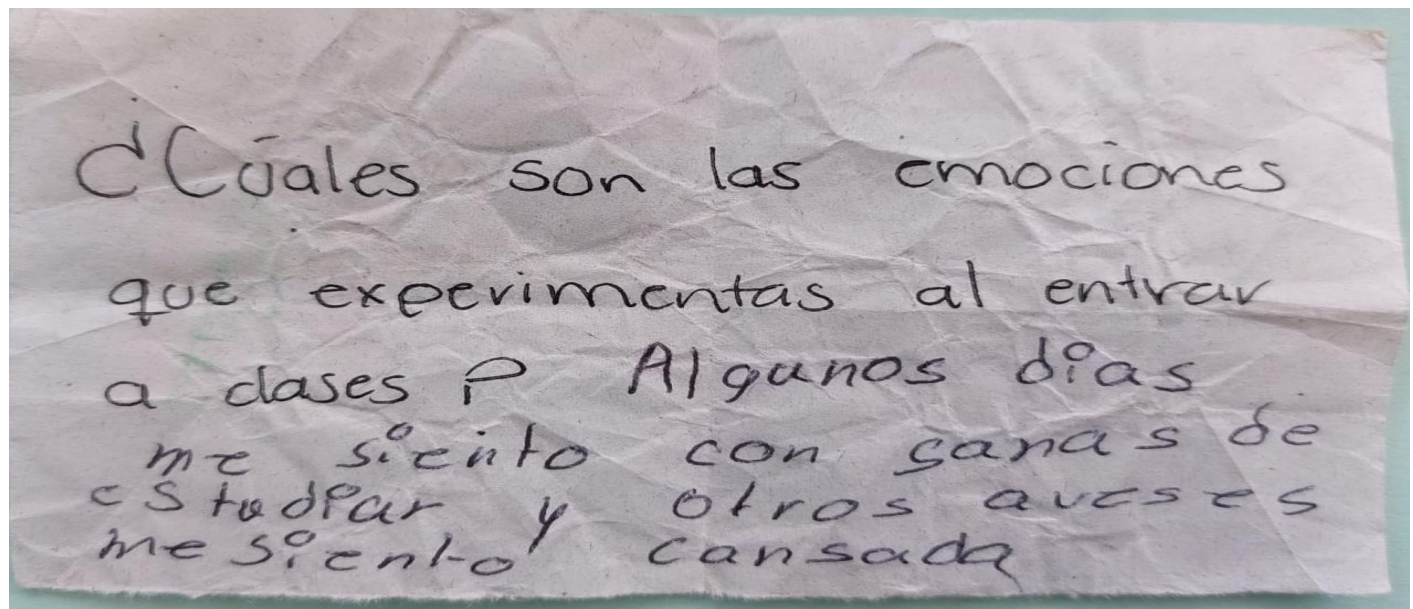 ¿Cúales son las emociones
que experimentas al entrar
a clases? Algunos días
me siento con ganas de
estudiar y otros aveses
me siento cansada